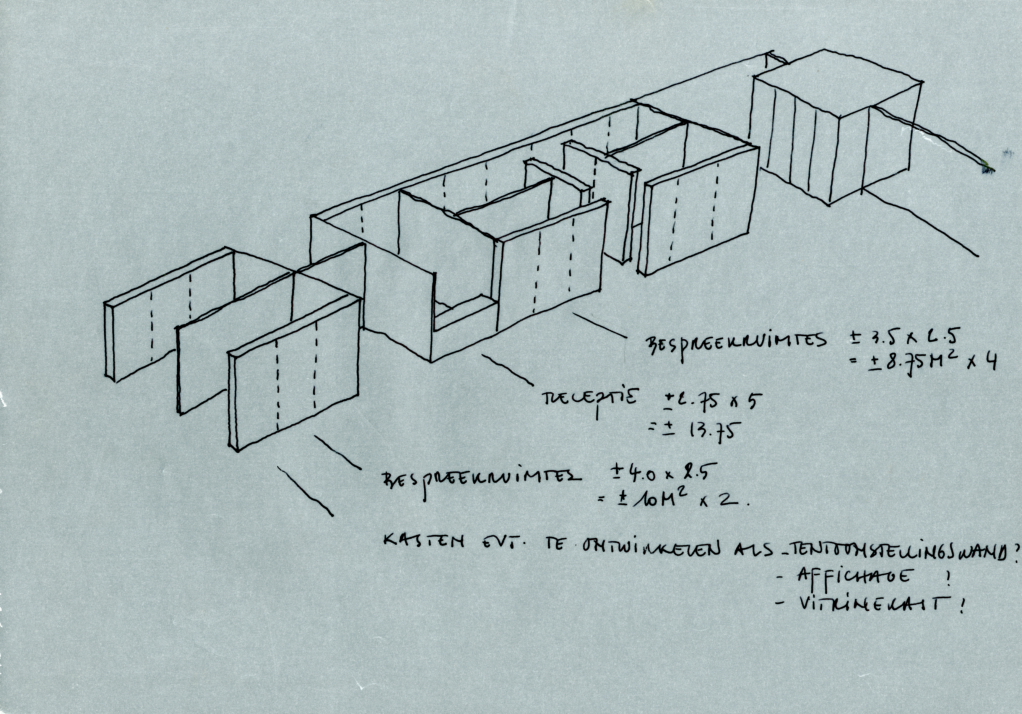 BESPREEKRUIMTES ± 3.5 x 2.5
= ± 8.75 M² x 4
RECEPTIE ± 2.75 x 5
= ± 13.75
BESPREEKRUIMTES ± 4.0 x 2.5
= ± 10 M² x 2.
KASTEN EVT. TE ONTWIKKELEN ALS - TENTOONSTELLINGSWAND?
- AFFICHAGE !
- VITRINEKAST !